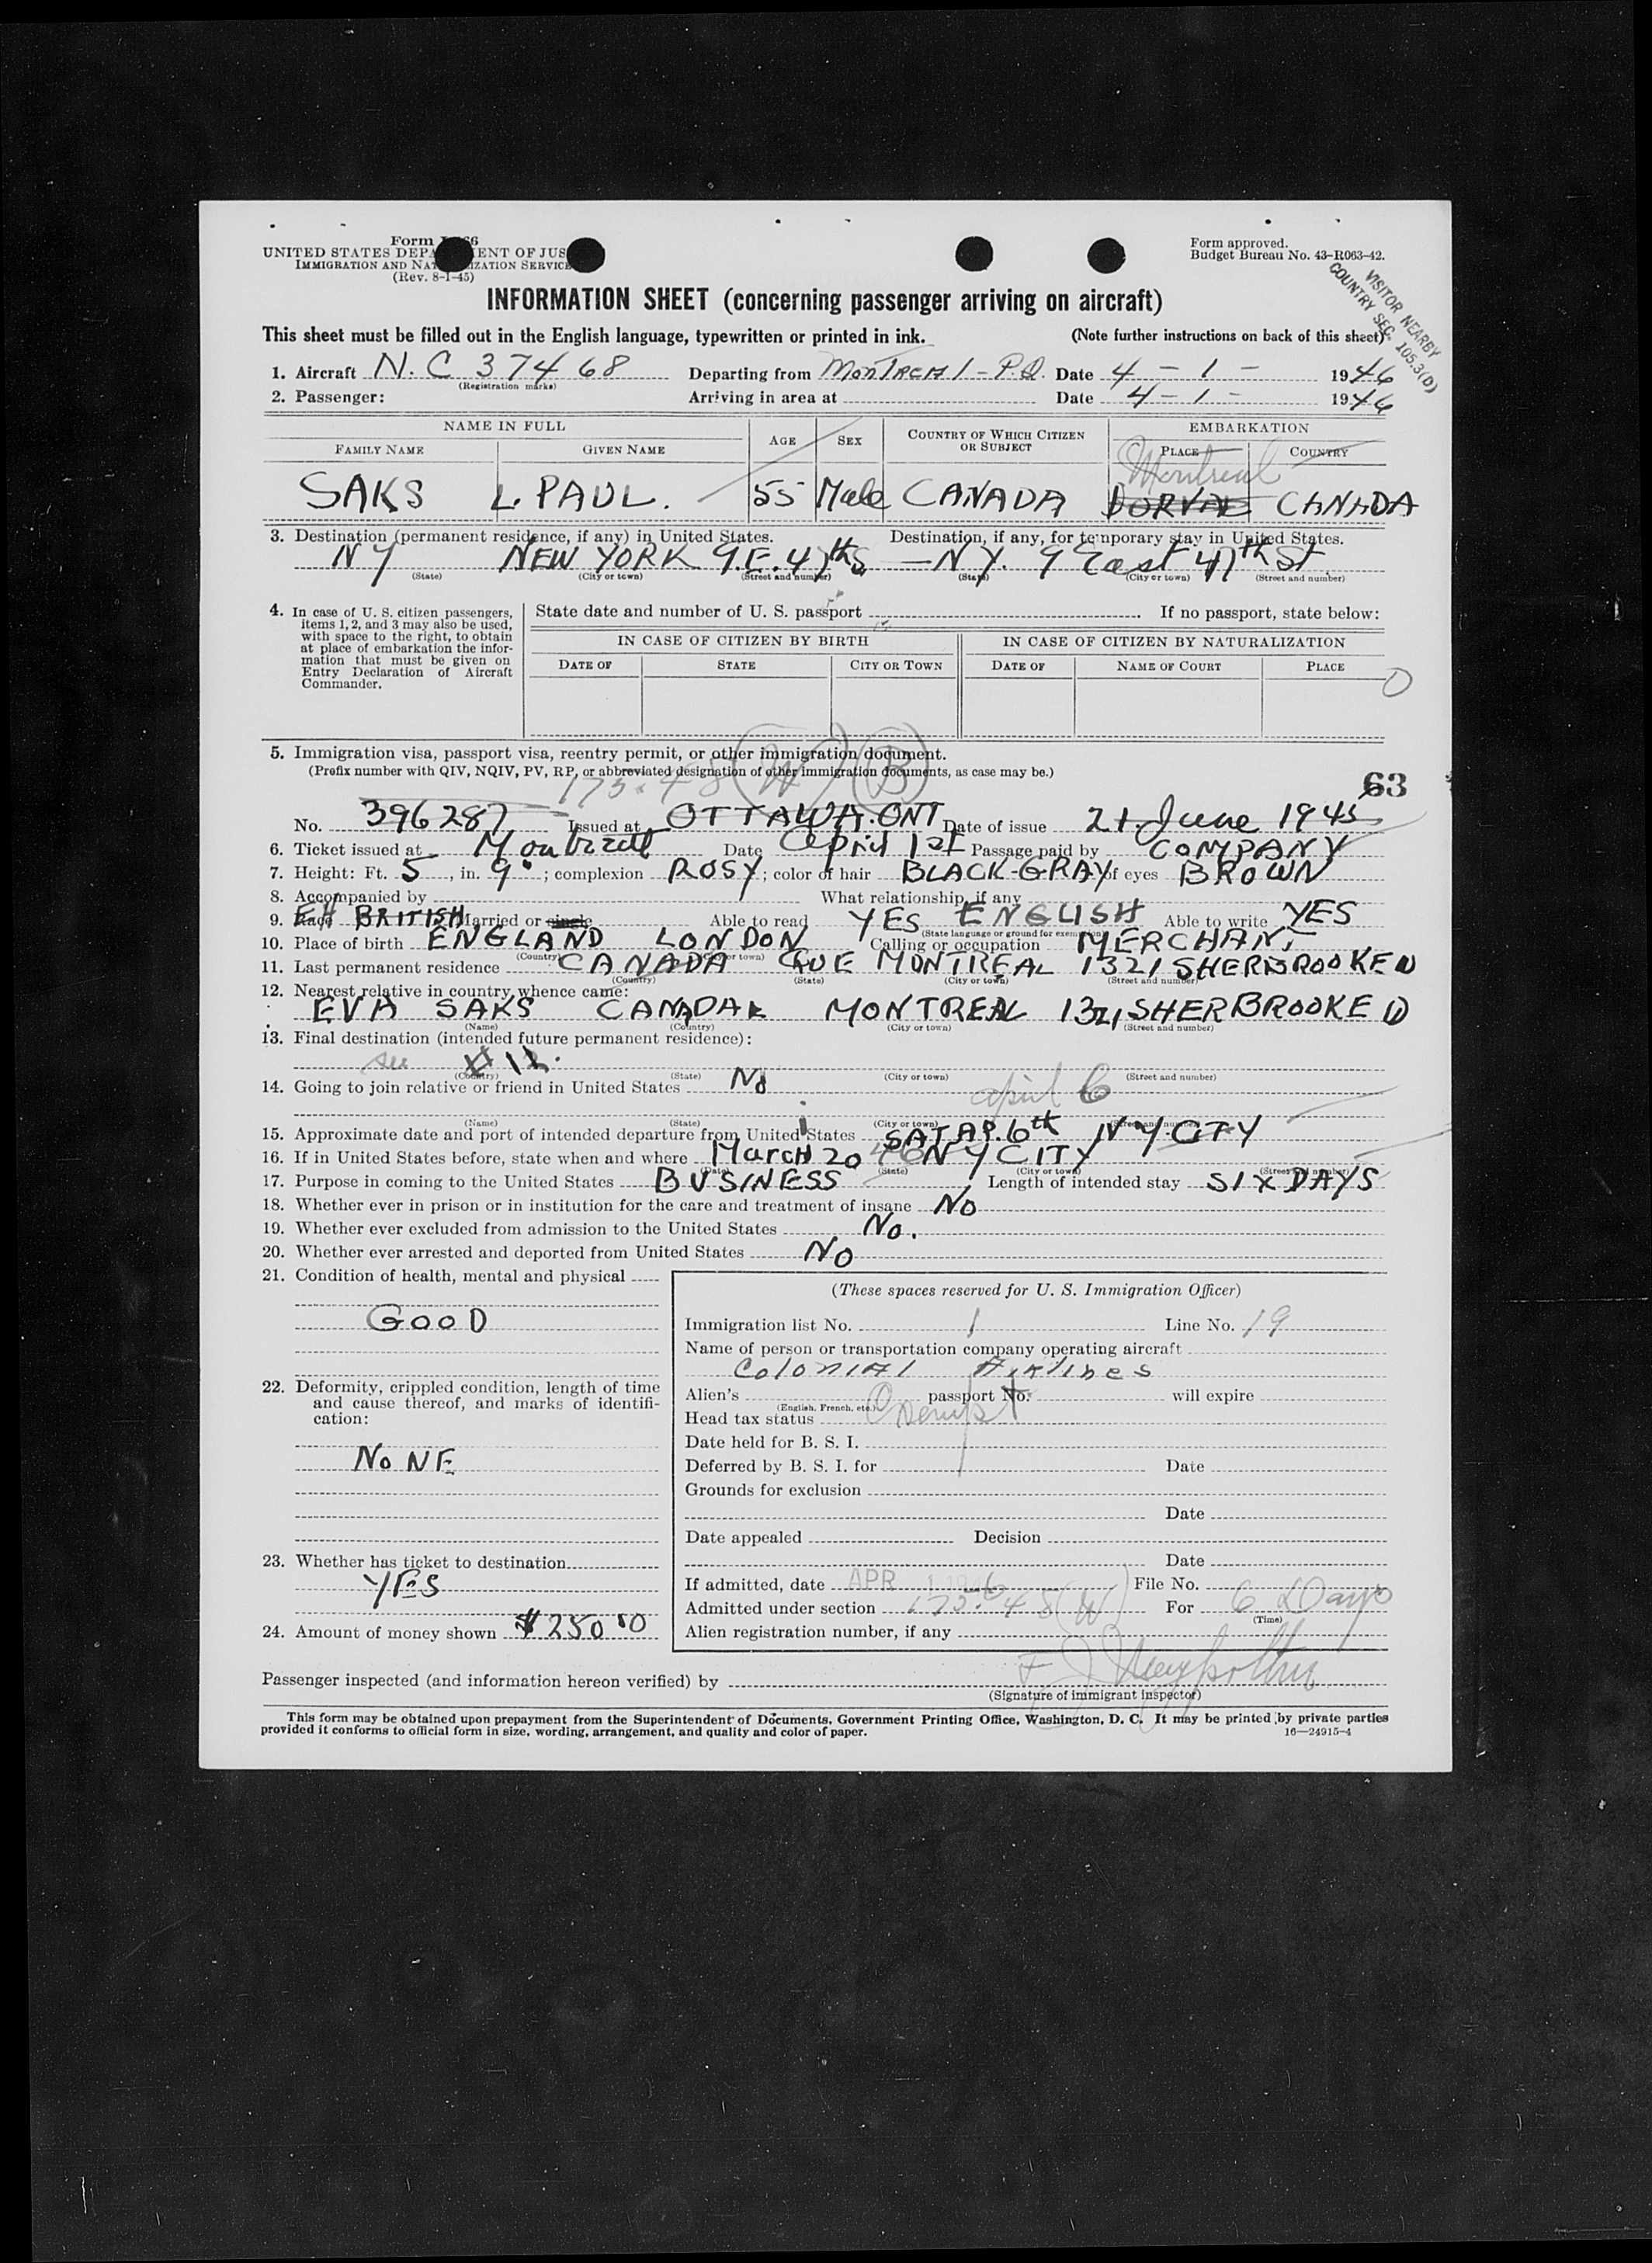 Form 66
UNITED STATES DEPA ENT OF JUS
IMMIGRATION AND NAT IZATION SERVICE
(Rev. 8-1-45)
Form approved.
Budget Bureau No. 43-R063-42.
VISITOR NEARBY
COUNTRY SEC. 105.3(D)
INFORMATION SHEET (concerning passenger arriving on aircraft)
This sheet must be filled out in the English language, typewritten or printed in ink. (Note further instructions on back of this sheet)
1. Aircraft N.C 37468 Departing from MonTReAl - P.Q. Date 4 - 1 - 1946
(Registration marks)
2. Passenger: Arriving in area at Date 4 - 1 - 1946
NAME IN FULL AGE SEX COUNTRY OF WHICH CITIZEN OR SUBJECT EMBARKATION
FAMILY NAME GIVEN NAME PLACE COUNTRY
Montreal
SAKS L. PAUL. 55 Male CANADA DORVAL CANADA
3. Destination (permanent residence, if any) in United States. Destination, if any, for temporary stay in United States.
NY NEW YORK 9.E.47th S — NY. 9 East 47th St.
(State) (City or town) (Street and number) (State) (City or town) (Street and number)
4. In case of U. S. citizen passengers, items 1, 2, and 3 may also be used, with space to the right, to obtain at place of embarkation the information that must be given on Entry Declaration of Aircraft Commander.
State date and number of U. S. passport If no passport, state below:
IN CASE OF CITIZEN BY BIRTH IN CASE OF CITIZEN BY NATURALIZATION
DATE OF STATE CITY OR TOWN DATE OF NAME OF COURT PLACE
0
5. Immigration visa, passport visa, reentry permit, or other immigration document.
(Prefix number with QIV, NQIV, PV, RP, or abbreviated designation of other immigration documents, as case may be.)
175.48 (W) (B)
63
No. 396287 Issued at OTTAWA.ONT Date of issue 21 June 1945
6. Ticket issued at Montreal Date April 1st Passage paid by COMPANY
7. Height: Ft. 5, in. 9"; complexion ROSY; color of hair BLACK-GRAY of eyes BROWN
8. Accompanied by What relationship, if any
9. Race BRITISH Married or single Able to read YES ENGLISH Able to write YES
(State language or ground for exemption)
10. Place of birth ENGLAND LONDON Calling or occupation MERCHANT
(Country) (City or town)
11. Last permanent residence CANADA QUE MONTREAL 1321 SHERBROOKE W
(Country) (State) (City or town) (Street and number)
12. Nearest relative in country whence came:
EVA SAKS CANADA MONTREAL 1321 SHERBROOKE W
(Name) (Country) (City or town) (Street and number)
13. Final destination (intended future permanent residence):
see # 12.
(Country) (State) (City or town) (Street and number)
14. Going to join relative or friend in United States No
april 6
(Name) (State) (City or town) (Street and number)
15. Approximate date and port of intended departure from United States SAT AP. 6th N Y CITY
16. If in United States before, state when and where March 20 46 N Y CITY
(Date) (State) (City or town) (Street and number)
17. Purpose in coming to the United States BUSINESS Length of intended stay SIX DAYS
18. Whether ever in prison or in institution for the care and treatment of insane No
19. Whether ever excluded from admission to the United States No.
20. Whether ever arrested and deported from United States No
21. Condition of health, mental and physical
GOOD
22. Deformity, crippled condition, length of time and cause thereof, and marks of identification:
NONE
23. Whether has ticket to destination
YES
24. Amount of money shown $250 00
(These spaces reserved for U. S. Immigration Officer)
Immigration list No. 1 Line No. 19
Name of person or transportation company operating aircraft
Colonial Airlines
Alien's passport No. will expire
(English, French, etc.)
Head tax status Exempt
Date held for B. S. I.
Deferred by B. S. I. for Date
Grounds for exclusion
Date
Date appealed Decision
Date
If admitted, date APR 1 1946 File No.
Admitted under section 175.48 (W) For 6 Days
(Time)
Alien registration number, if any
Passenger inspected (and information hereon verified) by
(Signature of immigrant inspector)
This form may be obtained upon prepayment from the Superintendent of Documents, Government Printing Office, Washington, D. C. It may be printed by private parties
provided it conforms to official form in size, wording, arrangement, and quality and color of paper. 16—24915-4